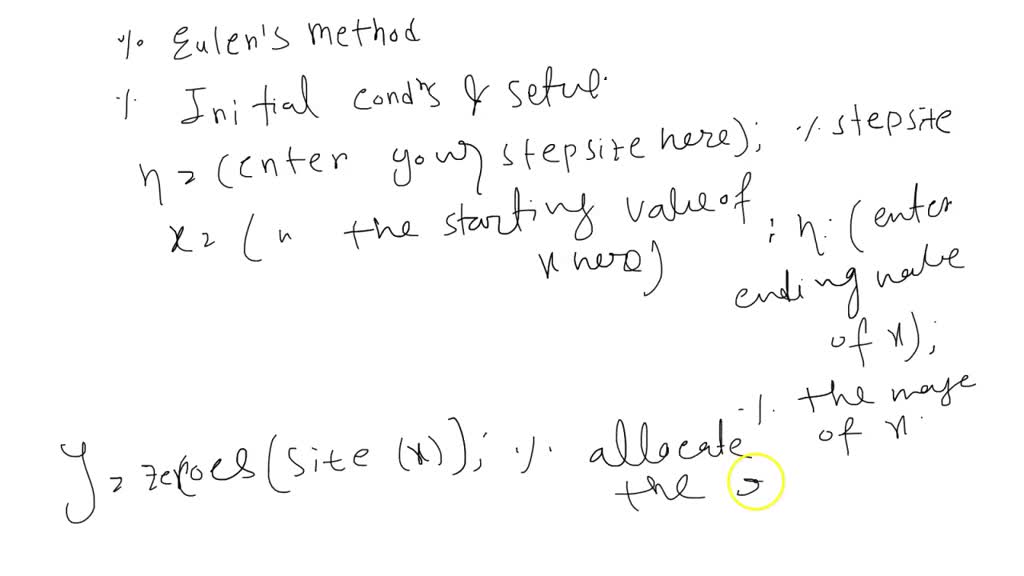 % Eulen's method
% Initial cond's & setup.
h = (enter your stepsize here); % stepsize
x = (" the starting value of x here) : h : (enter ending value of x);
% the range of x.
y = zeroes(size(x)); % allocate the